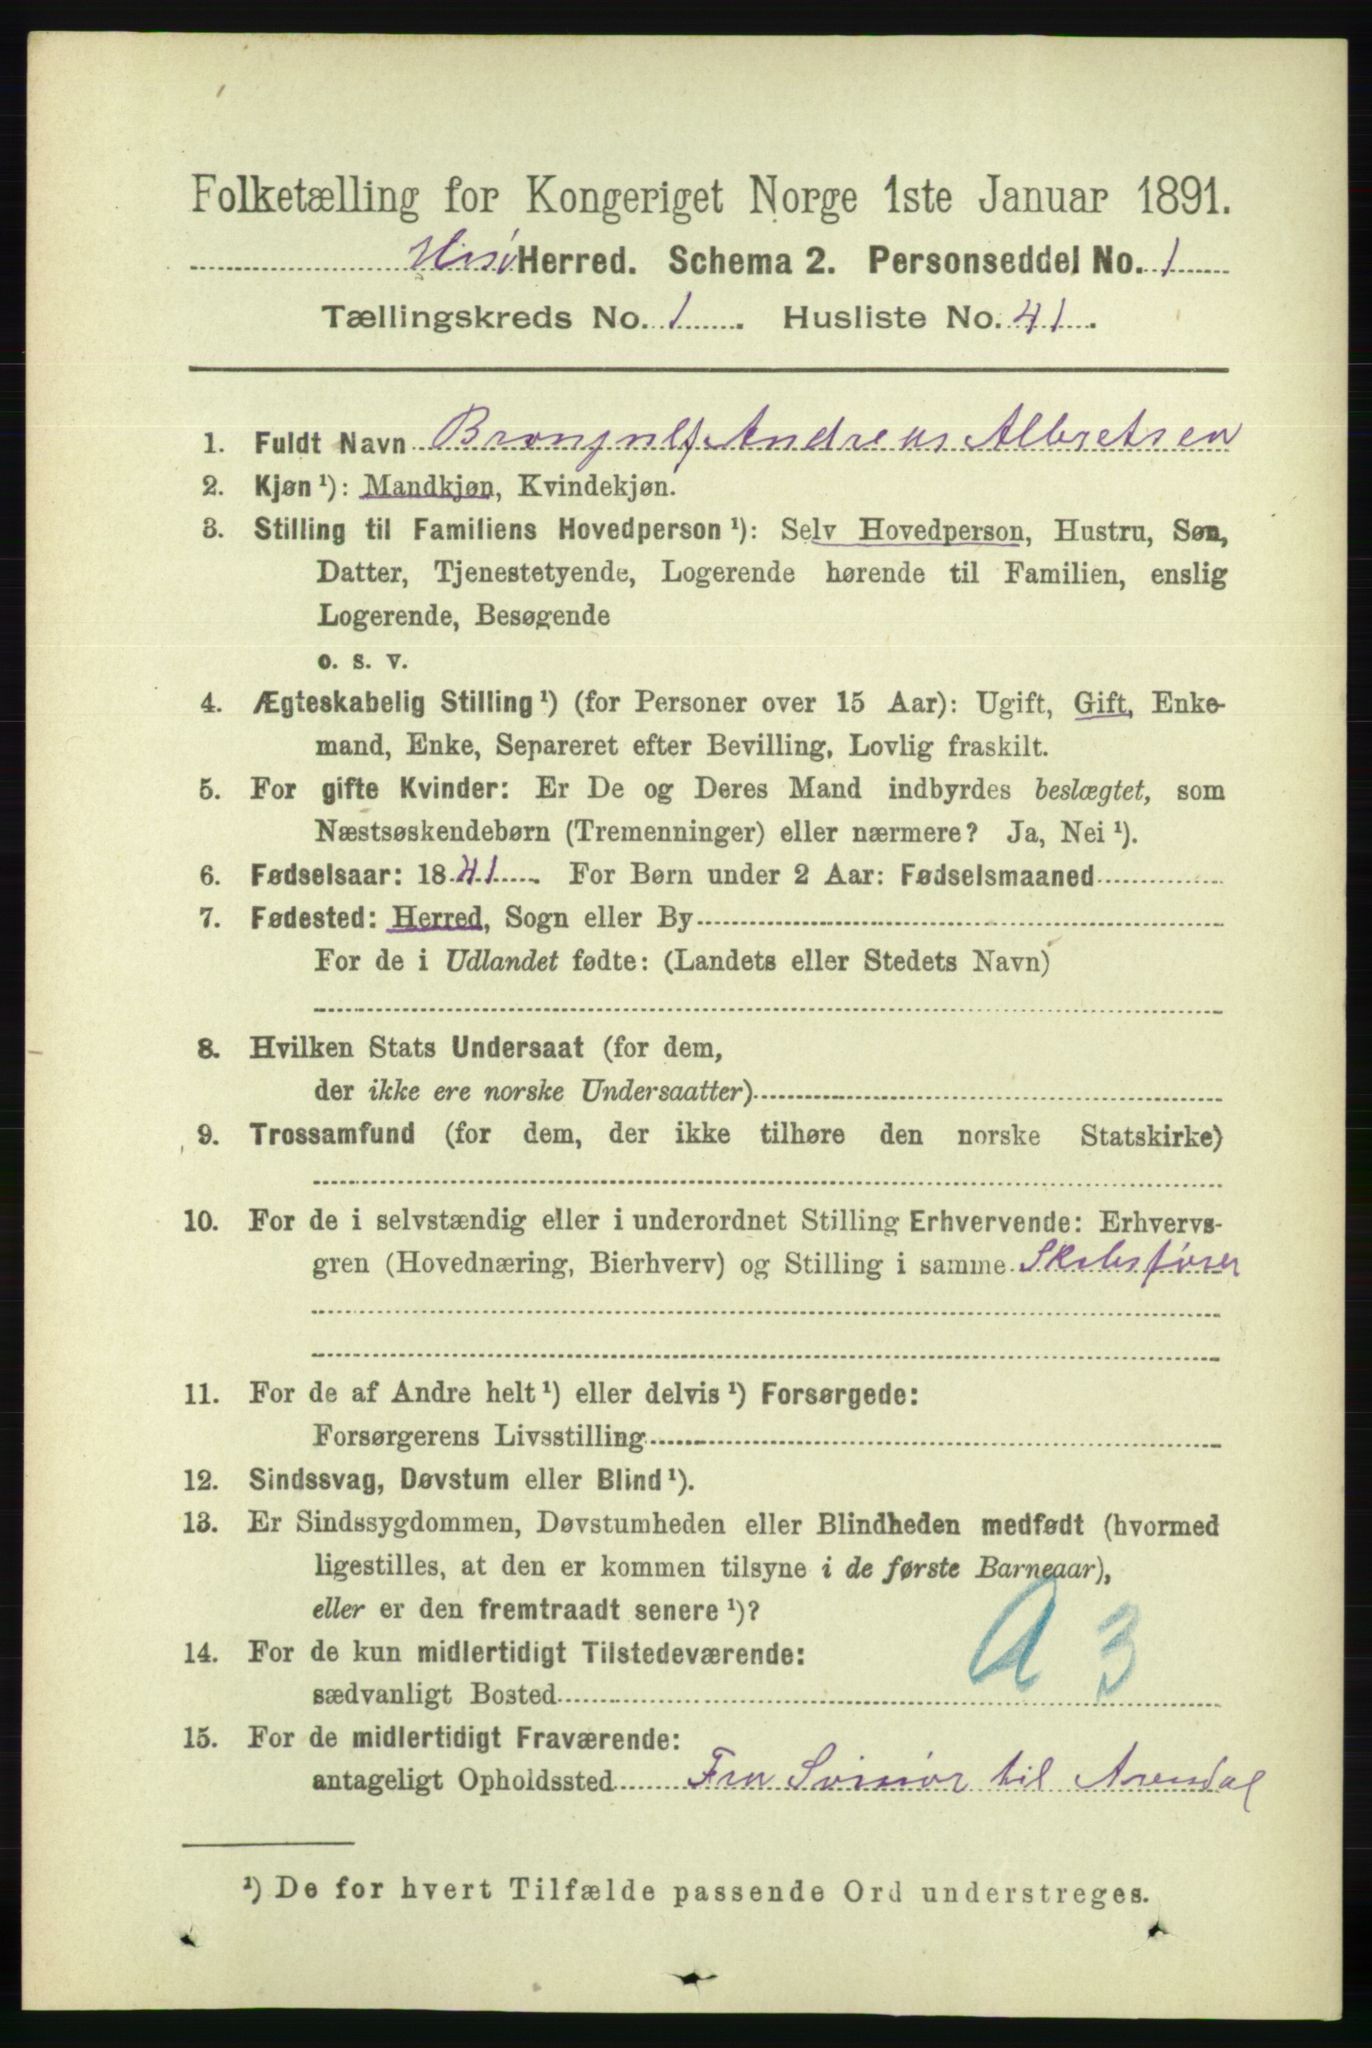 Folketælling for Kongeriget Norge 1ste Januar 1891.
Hisø Herred. Schema 2. Personseddel No. 1
Tællingskreds No. 1. Husliste No. 41.
1. Fuldt Navn Andreas Albretsen
2. Kjøn ¹): Mandkjøn, Kvindekjøn.
3. Stilling til Familiens Hovedperson ¹): Selv Hovedperson, Hustru, Søn,
Datter, Tjenestetyende, Logerende hørende til Familien, enslig
Logerende, Besøgende
o. s. v.
4. Ægteskabelig Stilling ¹) (for Personer over 15 Aar): Ugift, Gift, Enke-
mand, Enke, Separeret efter Bevilling, Lovlig fraskilt.
5. For gifte Kvinder: Er De og Deres Mand indbyrdes beslægtet, som
Næstsøskendebørn (Tremenninger) eller nærmere? Ja, Nei ¹).
6. Fødselsaar: 1841. For Børn under 2 Aar: Fødselsmaaned
7. Fødested: Herred, Sogn eller By
For de i Udlandet fødte: (Landets eller Stedets Navn)
8. Hvilken Stats Undersaat (for dem,
der ikke ere norske Undersaatter)
9. Trossamfund (for dem, der ikke tilhøre den norske Statskirke)
10. For de i selvstændig eller i underordnet Stilling Erhvervende: Erhvervs-
gren (Hovednæring, Bierhverv) og Stilling i samme Skibsfører
11. For de af Andre helt ¹) eller delvis ¹) Forsørgede:
Forsørgerens Livsstilling
12. Sindssvag, Døvstum eller Blind ¹).
13. Er Sindssygdommen, Døvstumheden eller Blindheden medfødt (hvormed
ligestilles, at den er kommen tilsyne i de første Barneaar),
eller er den fremtraadt senere ¹)?
A 3
14. For de kun midlertidigt Tilstedeværende:
sædvanligt Bosted
15. For de midlertidigt Fraværende:
antageligt Opholdssted Fra til Arendal
¹) De for hvert Tilfælde passende Ord understreges.